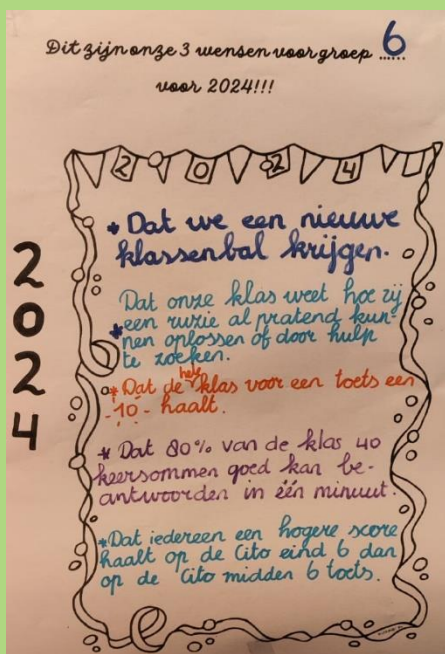 Dit zijn onze 3 wensen voor groep 6
voor 2024!!!
2 0 2 4
2
0
2
4
* Dat we een nieuwe
klassenbal krijgen.
Dat onze klas weet hoe zij
* een ruzie al pratend kun-
nen oplossen of door hulp
te zoeken.
* Dat de hele klas voor een toets een
-10- haalt.
* Dat 80% van de klas 40
keersommen goed kan be-
antwoorden in één minuut.
* Dat iedereen een hogere score
haalt op de Cito eind 6 dan
op de Cito midden 6 toets.